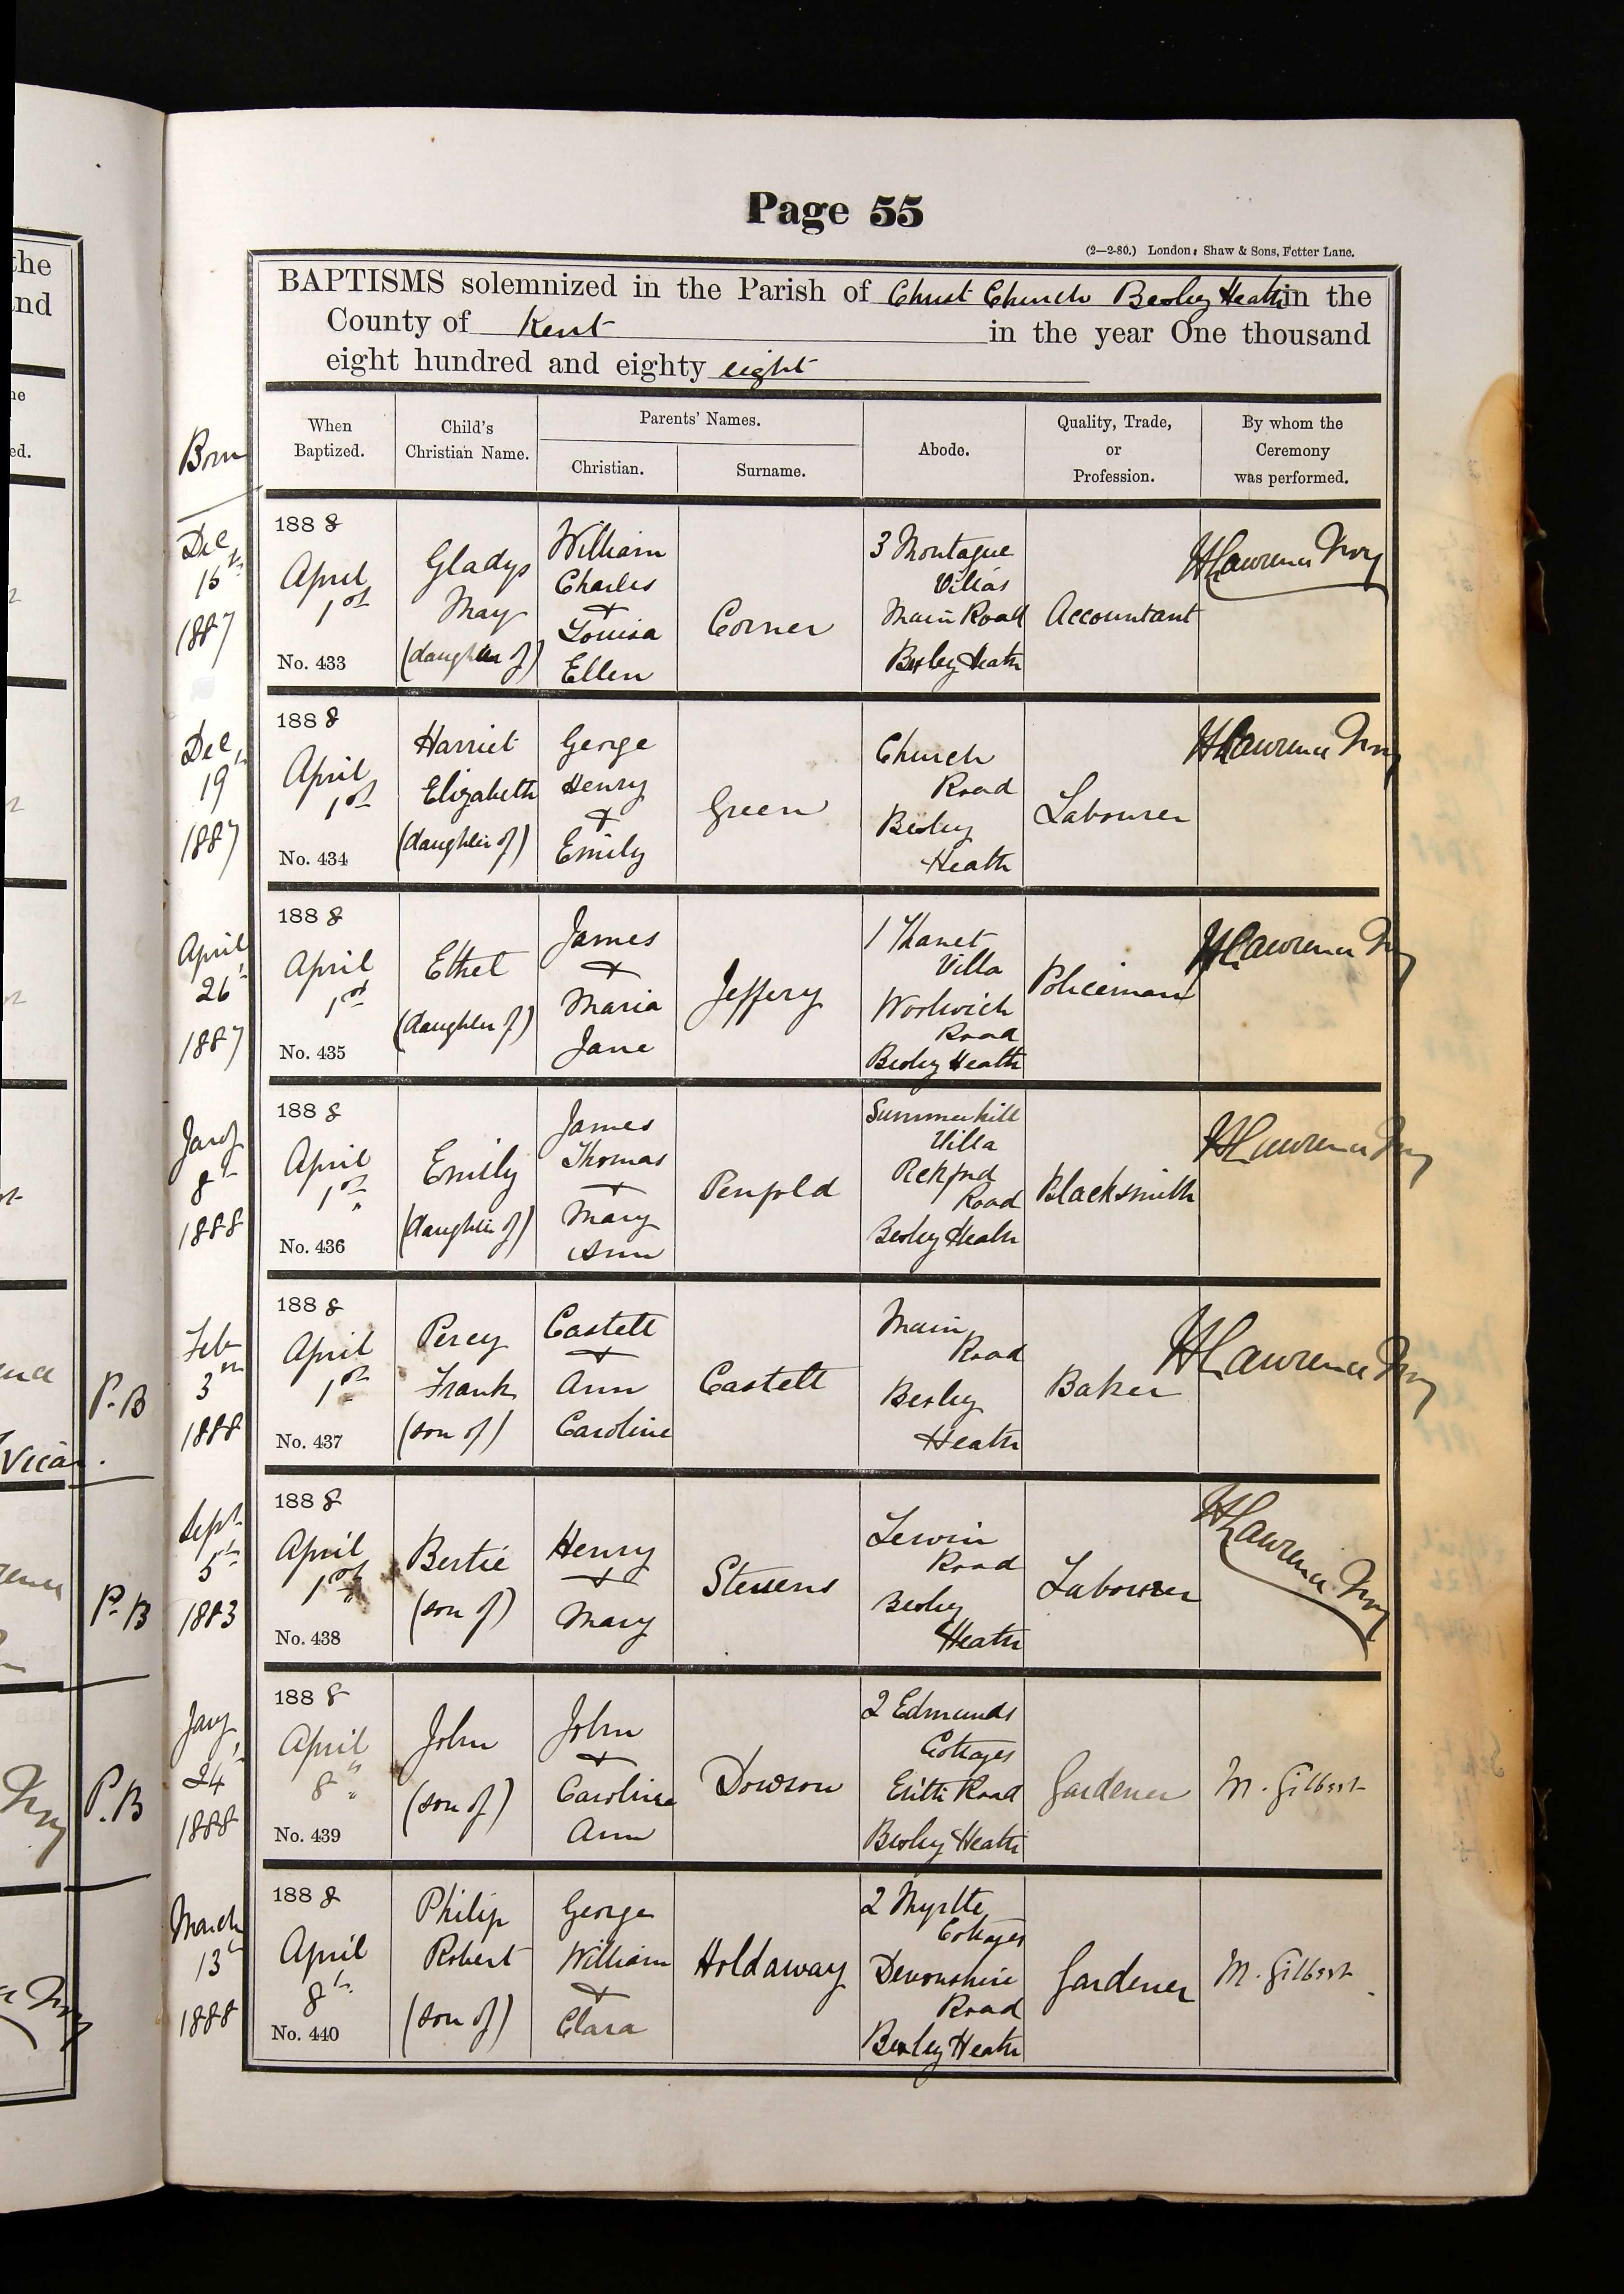 Page 55
(2—2-80.) London: Shaw & Sons, Fetter Lane.
BAPTISMS solemnized in the Parish of Christ Church Bexley Heath in the
County of Kent in the year One thousand
eight hundred and eighty eight
Born
When Baptized.
Child's Christian Name.
Parents' Names.
Christian.
Surname.
Abode.
Quality, Trade, or Profession.
By whom the Ceremony was performed.
Dec
1887
1888
April
1st
No. 433
Gladys
May
(daughter of)
William
Charles
+
Louisa
Ellen
Corner
3 Montague
Villas
Main Road
Bexley Heath
Accountant
H Lawrence
Dec
19
1887
1888
April
1st
No. 434
Harriet
Elizabeth
(daughter of)
George
Henry
+
Emily
Green
Church
Road
Bexley
Heath
Labourer
H Lawrence
April
26
1887
1888
April
1st
No. 435
Ethel
(daughter of)
James
+
Maria
Jane
Jeffery
1 Thanet
Villa
Woolwich
Road
Bexley Heath
Policeman
H Lawrence
Jany
8th
1888
1888
April
1st
No. 436
Emily
(daughter of)
James
Thomas
+
Mary
Ann
Penfold
Summerhill
Villa
Road
Bexley Heath
Blacksmith
H Lawrence
Feb
3
1888
1888
April
1st
No. 437
Percy
Frank
(son of)
Castell
+
Ann
Caroline
Castell
Main
Road
Bexley
Heath
Baker
H Lawrence
Sept
5th
1883
1888
April
1st
No. 438
Bertie
(son of)
Henry
+
Mary
Stevens
Lewin
Road
Bexley
Heath
Labourer
H Lawrence
Jany
24
1888
1888
April
8
No. 439
John
(son of)
John
+
Caroline
Ann
Dowson
2 Edmunds
Cottages
Erith Road
Bexley Heath
Gardener
M. Gilbert
March
13
1888
1888
April
8th
No. 440
Philip
Robert
(son of)
George
William
+
Clara
Holdaway
2 Myrtle
Cottages
Devonshire
Road
Bexley Heath
Gardener
M. Gilbert
the
P.B
Vicar.
P.B
P.B